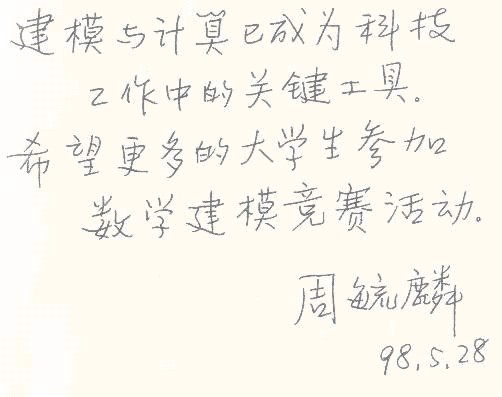 建模与计算已成为科技
工作中的关键工具.
希望更多的大学生参加
数学建模竞赛活动.
周毓麟
98.5.28